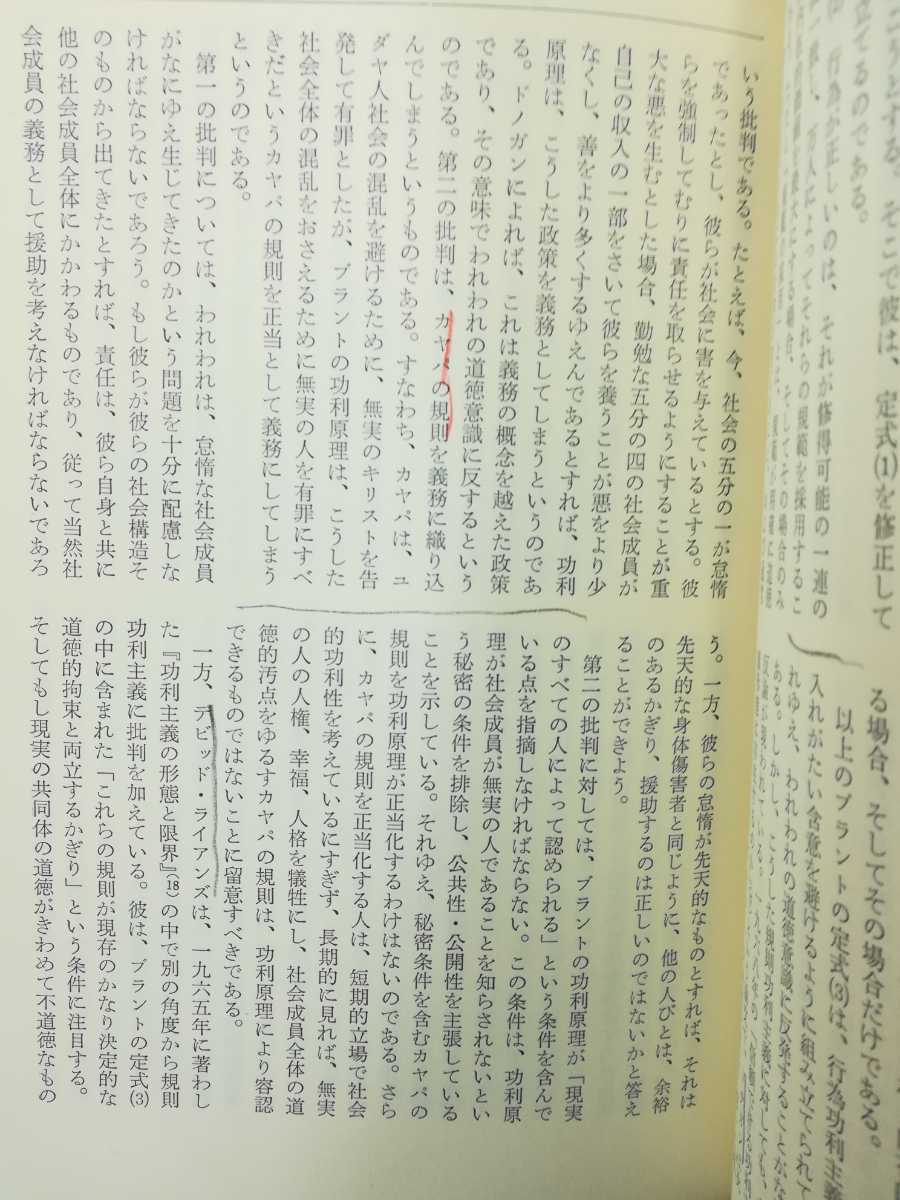 こうとする。そこで彼は、定式(1)を修正して
立てるのである。
行為が正しいのは、それが修得可能の一連の
それらの規範を採用するこ
る場合、そしてその場合だけである。
以上のブラントの定式(3)は、行為功利主義
入れがたい含意を避けるように組み立てられて
ある。しかし、こうした規則功利主義に対しても、
れゆえ、われわれの道徳意識に反発することがな
いう批判である。たとえば、今、社会の五分の一が怠惰
であったとし、彼らが社会に害を与えているとする。彼
らを強制してむりに責任を取らせるようにすることが重
大な悪を生むとした場合、勤勉な五分の四の社会成員が
自己の収入の一部をさいて彼らを養うことが悪をより少
なくし、善をより多くするゆえんであるとすれば、功利
原理は、こうした政策を義務としてしまうというのであ
る。ドノガンによれば、これは義務の概念を越えた政策
であり、その意味でわれわれの道徳意識に反するという
のである。第二の批判は、カヤパの規則を義務に織り込
んでしまうというものである。すなわち、カヤパは、ユ
ダヤ人社会の混乱を避けるために、無実のキリストを告
発して有罪としたが、ブラントの功利原理は、こうした
社会全体の混乱をおさえるために無実の人を有罪にすべ
きだというカヤパの規則を正当として義務にしてしまう
というのである。
第一の批判については、われわれは、怠惰な社会成員
がなにゆえ生じてきたのかという問題を十分に配慮しな
ければならないであろう。もし彼らが彼らの社会構造そ
のものから出てきたとすれば、責任は、彼ら自身と共に
他の社会成員全体にかかわるものであり、従って当然社
会成員の義務として援助を考えなければならないであろ
う。一方、彼らの怠惰が先天的なものとすれば、それは
先天的な身体傷害者と同じように、他の人びとは、余裕
のあるかぎり、援助するのは正しいのではないかと答え
ることができよう。
第二の批判に対しては、ブラントの功利原理が「現実
のすべての人によって認められる」という条件を含んで
いる点を指摘しなければならない。この条件は、功利原
理が社会成員が無実の人であることを知らされないとい
う秘密の条件を排除し、公共性・公開性を主張している
ことを示している。それゆえ、秘密条件を含むカヤパの
規則を功利原理が正当化するわけはないのである。さら
に、カヤパの規則を正当化する人は、短期的立場で社会
的功利性を考えているにすぎず、長期的に見れば、無実
の人の人権、幸福、人格を犠牲にし、社会成員全体の道
徳的汚点をゆるすカヤパの規則は、功利原理により容認
できるものではないことに留意すべきである。
一方、デビッド・ライアンズは、一九六五年に著わし
た『功利主義の形態と限界』(18)の中で別の角度から規則
功利主義に批判を加えている。彼は、ブラントの定式(3)
の中に含まれた「これらの規則が現存のかなり決定的な
道徳的拘束と両立するかぎり」という条件に注目する。
そしてもし現実の共同体の道徳がきわめて不道徳なもの